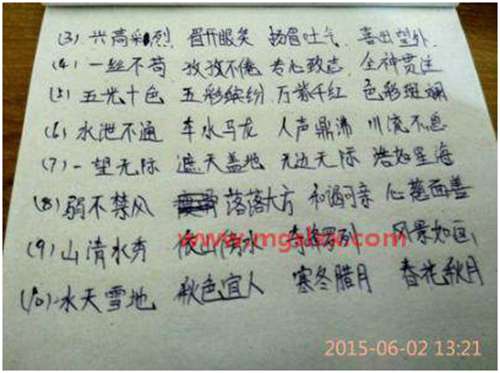 (3) 兴高彩烈 眉开眼笑 扬眉吐气 喜出望外
(4) 一丝不苟 孜孜不倦 专心致志 全神贯注
(5) 五光十色 五彩缤纷 万紫千红 色彩斑斓
(6) 水泄不通 车水马龙 人声鼎沸 川流不息
(7) 一望无际 遮天盖地 无边无际 浩如星海
(8) 弱不禁风 落落大方 和谒可亲 心慈面善
(9) 山清水秀 风景如画
(10) 水天雪地 秋色宜人 寒冬腊月 春花秋月
2015-06-02 13:21